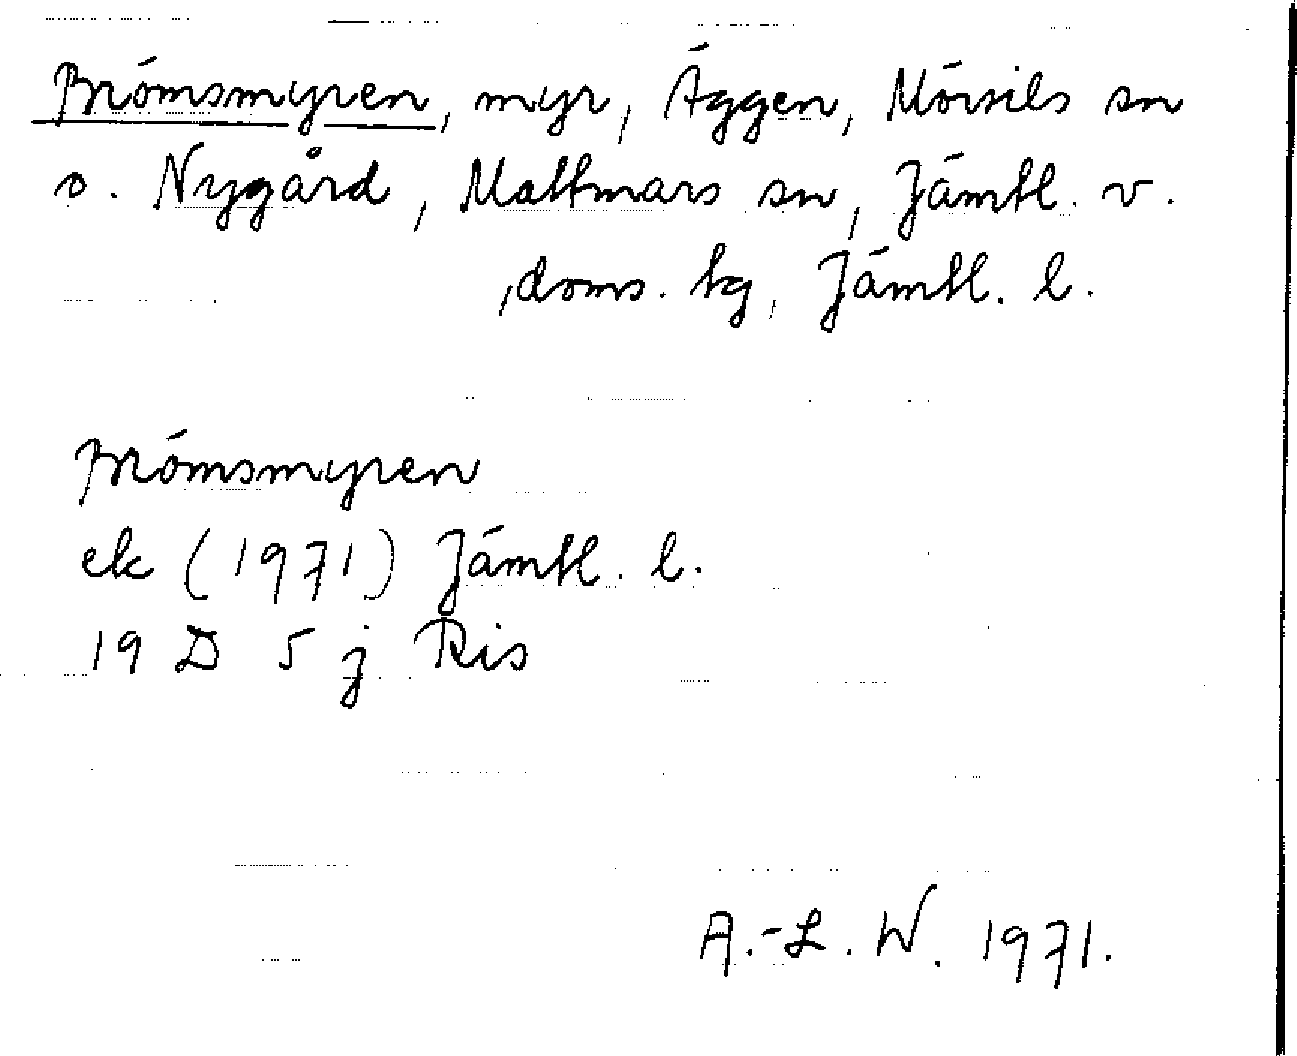 Brömsmyren, myr, Äggen, Mörsils sn
o. Nygård, Mattmars sn, Jämtl. v.
doms. hg, Jämtl. l.
Brömsmyren
ek (1971) Jämtl. l.
19 D 5 j Ris
A.-L. W. 1971.